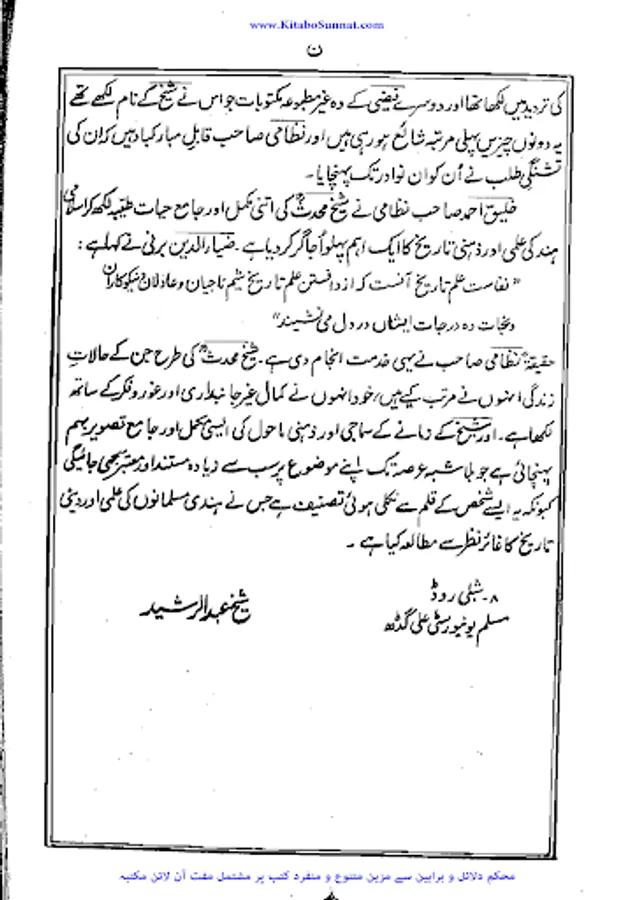 www.KitaboSunnat.com
ن
کی تردید میں لکھا تھا اور دوسرے فیضی کے وہ غیر مطبوعہ مکتوبات جو اس نے شیخ کے نام لکھے تھے
یہ دونوں چیزیں پہلی مرتبہ شائع ہو رہی ہیں اور نظامی صاحب قابلِ مبارکباد ہیں کہ ان کی
تشنگی طلب نے اُن کو ان نوادر تک پہنچایا۔
خلیق احمد صاحب نظامی نے شیخ محدثؒ کی اتنی مکمل اور جامع حیات طیبہ لکھ کر اسلامی
ہند کی علمی اور ذہنی تاریخ کا ایک اہم پہلو اُجاگر کر دیا ہے۔ ضیاء الدین برنی نے کہا ہے:
"نفاست علم تاریخ آنست کہ از دانستن علم تاریخ شیم ناجیان و عادلان و نیکوکاران
و نجات دہ درجات ایشاں در دل می نشیند"
حقیقۃً نظامی صاحب نے یہی خدمت انجام دی ہے۔ شیخ محدثؒ کی طرح جن کے حالاتِ
زندگی انہوں نے مرتب کیے ہیں، خود انہوں نے کمال غیر جانبداری اور غور و فکر کے ساتھ
لکھا ہے۔ اور شیخ کے زمانے کے سماجی اور ذہنی ماحول کی ایسی مکمل اور جامع تصویر بہم
پہنچائی ہے جو بلا شبہ عرصہ تک اپنے موضوع پر سب سے زیادہ مستند اور معتبر سمجھی جائیگی
کیونکہ یہ ایسے شخص کے قلم سے نکلی ہوئی تصنیف ہے جس نے ہندی مسلمانوں کی علمی اور دینی
تاریخ کا غائر نظر سے مطالعہ کیا ہے۔
۸۔ شبلی روڈ
مسلم یونیورسٹی علی گڈھ
شیخ عبدالرشید
محکم دلائل و براہین سے مزین متنوع و منفرد کتب پر مشتمل مفت آن لائن مکتبہ